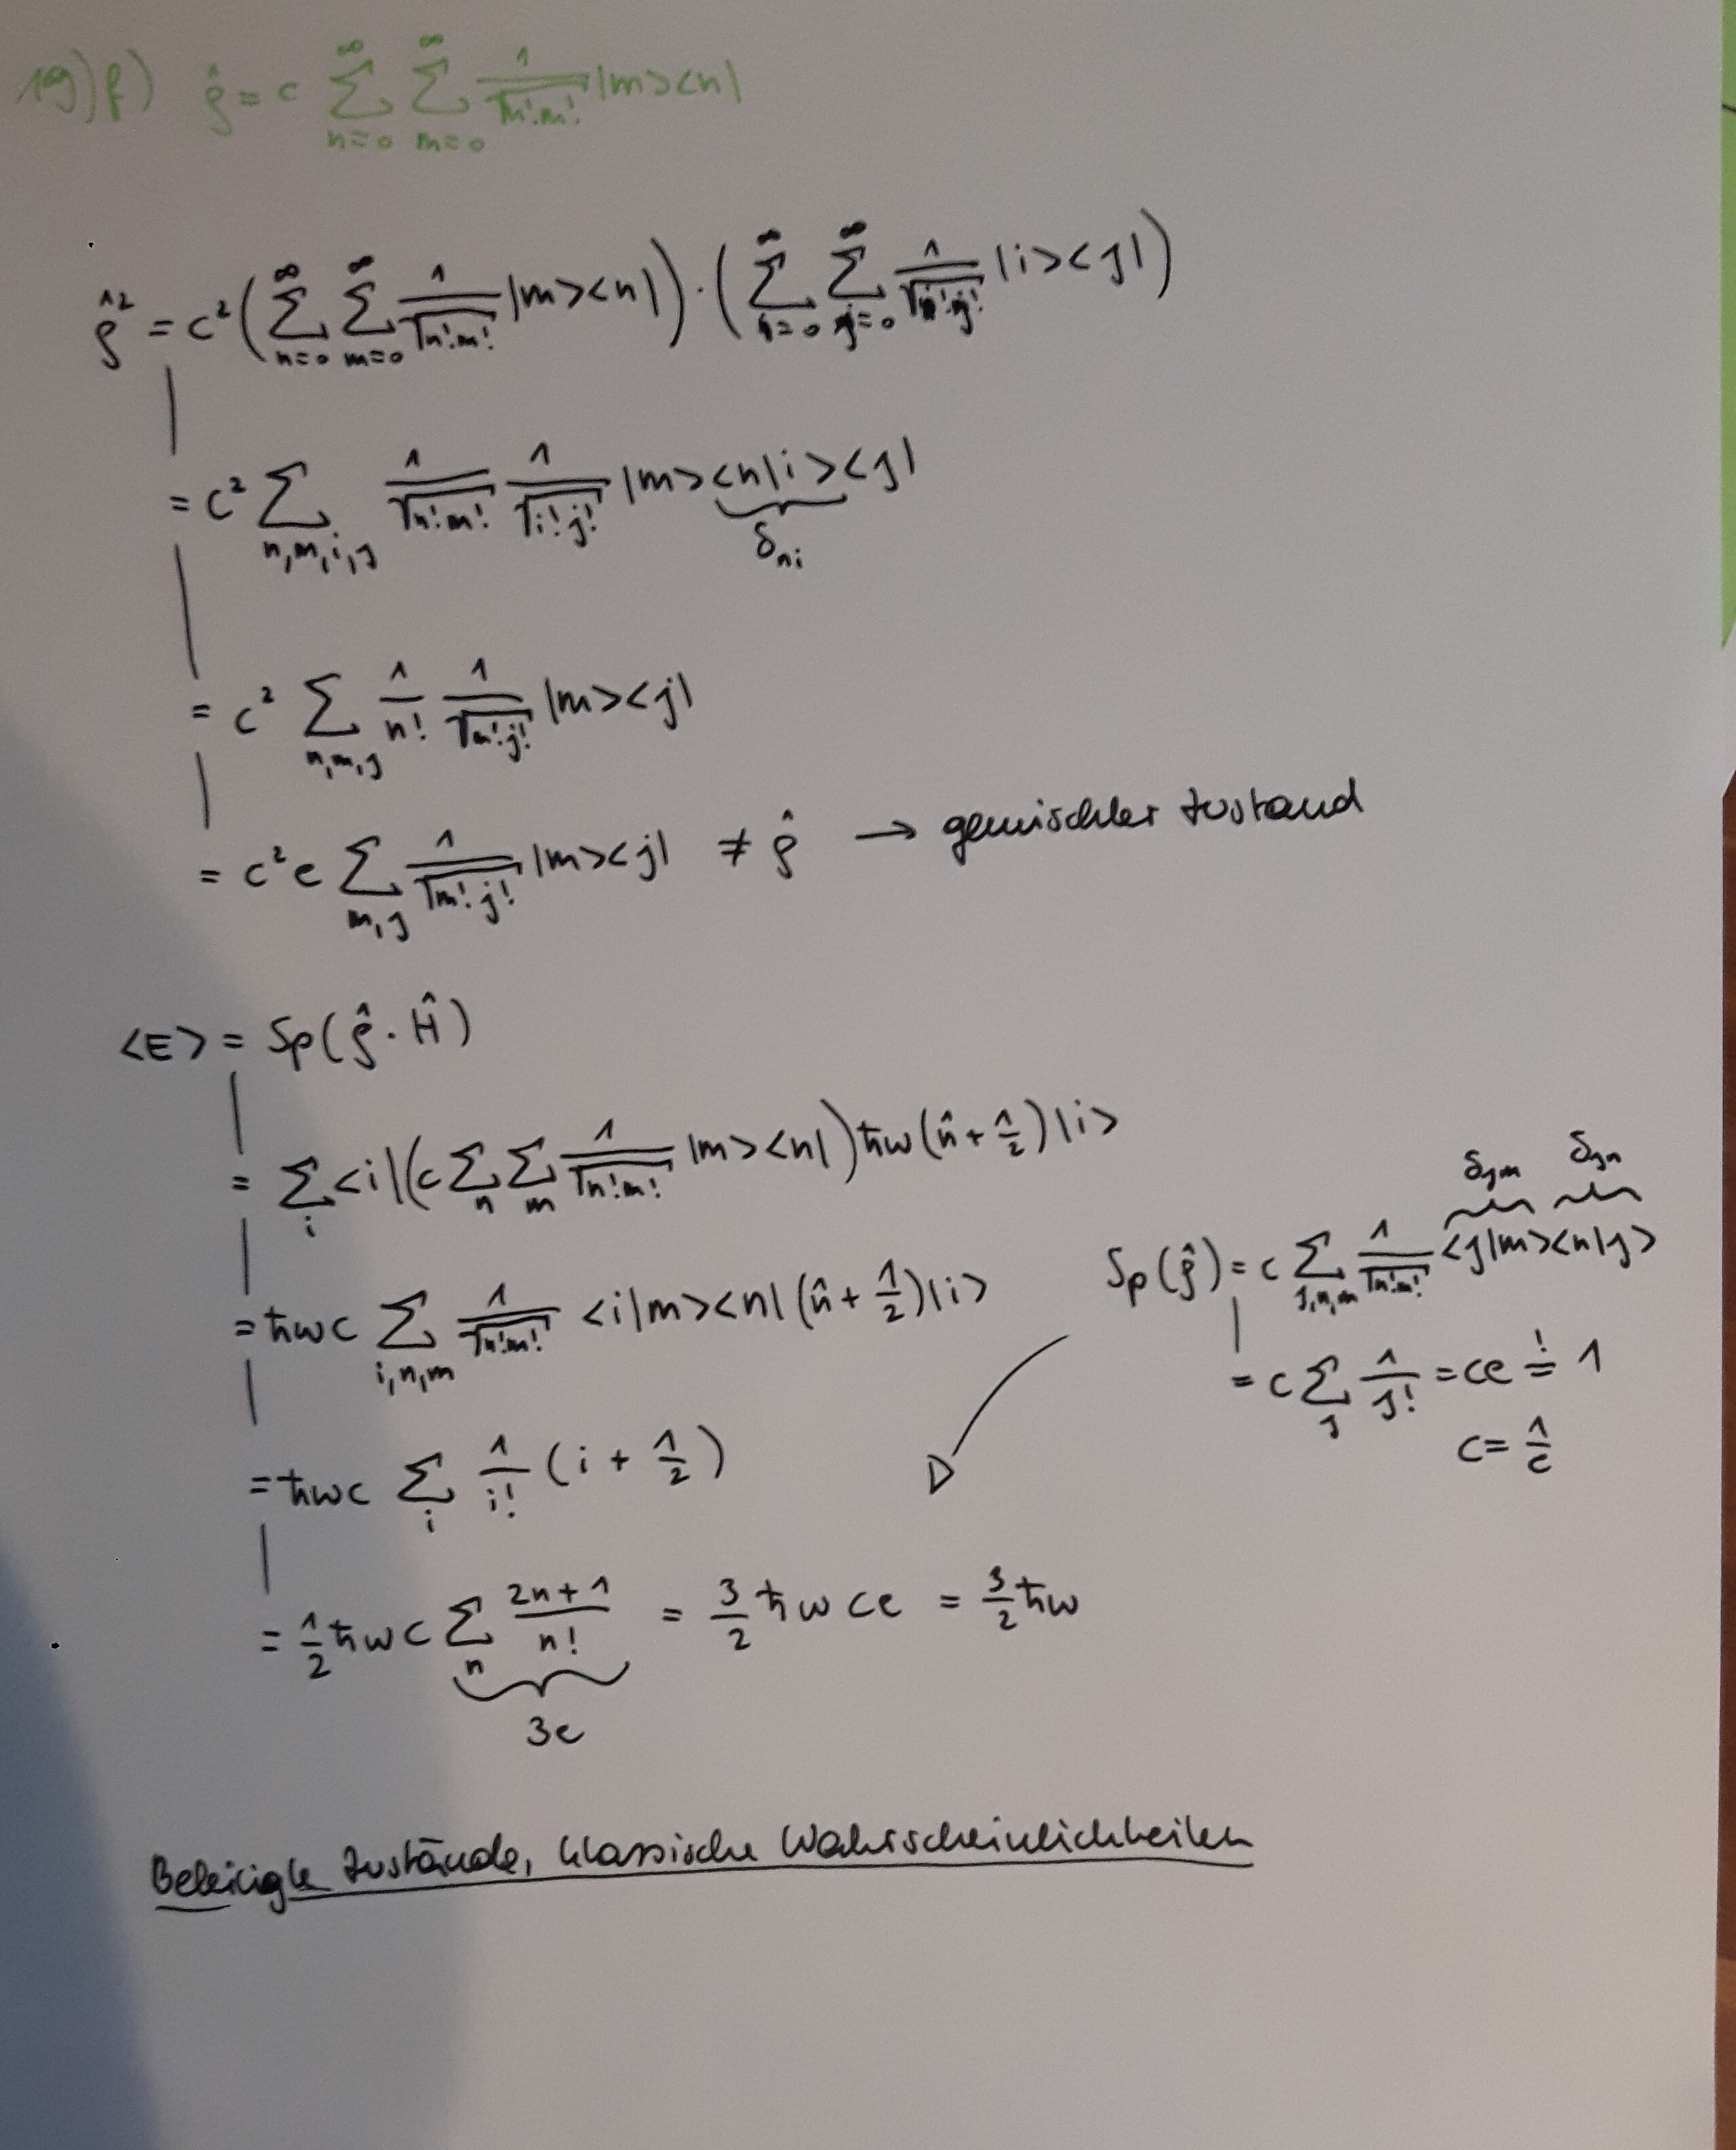 19)f) ρ̂ = c ∑_{n=0}^{∞} ∑_{m=0}^{∞} 1/√(n!m!) |m><n|
ρ̂² = c² (∑_{n=0}^{∞} ∑_{m=0}^{∞} 1/√(n!m!) |m><n|) · (∑_{i=0}^{∞} ∑_{j=0}^{∞} 1/√(i!j!) |i><j|)
= c² ∑_{n,m,i,j} 1/√(n!m!) 1/√(i!j!) |m><n|i><j|
δ_{ni}
= c² ∑_{n,m,j} 1/n! 1/√(m!j!) |m><j|
= c²e ∑_{m,j} 1/√(m!j!) |m><j| ≠ ρ̂ → gemischter Zustand
<E> = Sp(ρ̂ · Ĥ)
= ∑_i <i|(c ∑_n ∑_m 1/√(n!m!) |m><n|) ħω(n̂ + 1/2)|i>
= ħωc ∑_{i,n,m} 1/√(n!m!) <i|m><n|(n̂ + 1/2)|i>
= ħωc ∑_i 1/i! (i + 1/2)
= 1/2 ħωc ∑_n (2n+1)/n! = 3/2 ħω ce = 3/2 ħω
3e
δ_{jm} δ_{jn}
Sp(ρ̂) = c ∑_{j,n,m} 1/√(n!m!) <j|m><n|j>
= c ∑_j 1/j! = ce =! 1
c = 1/e
Beteiligte Zustände, klassische Wahrscheinlichkeiten